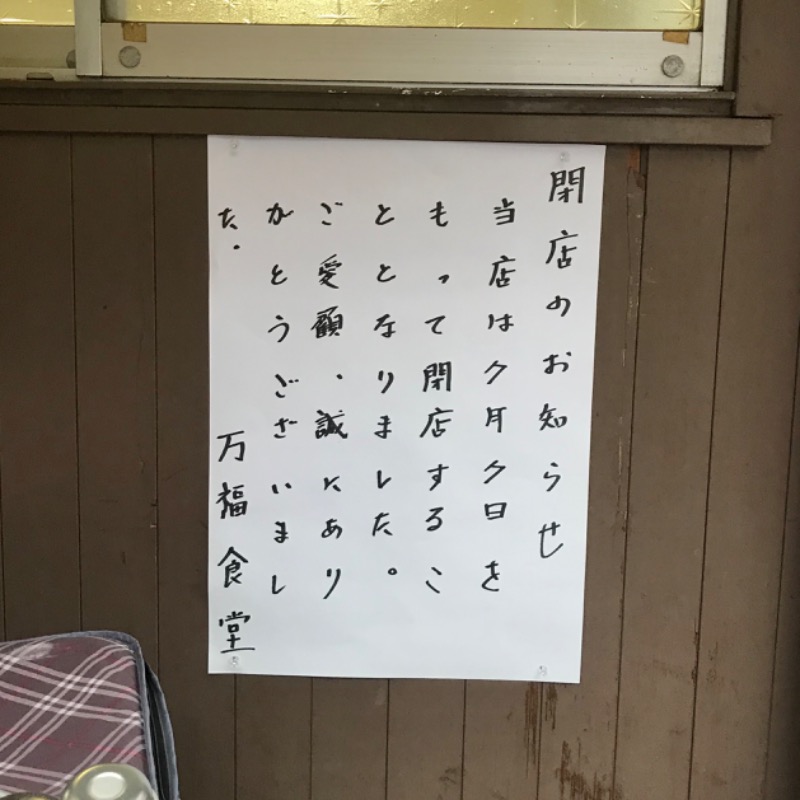 閉店のお知らせ
当店は9月9日を
もって閉店するこ
ととなりました。
ご愛顧、誠にあり
がとうございまし
た。
万福食堂